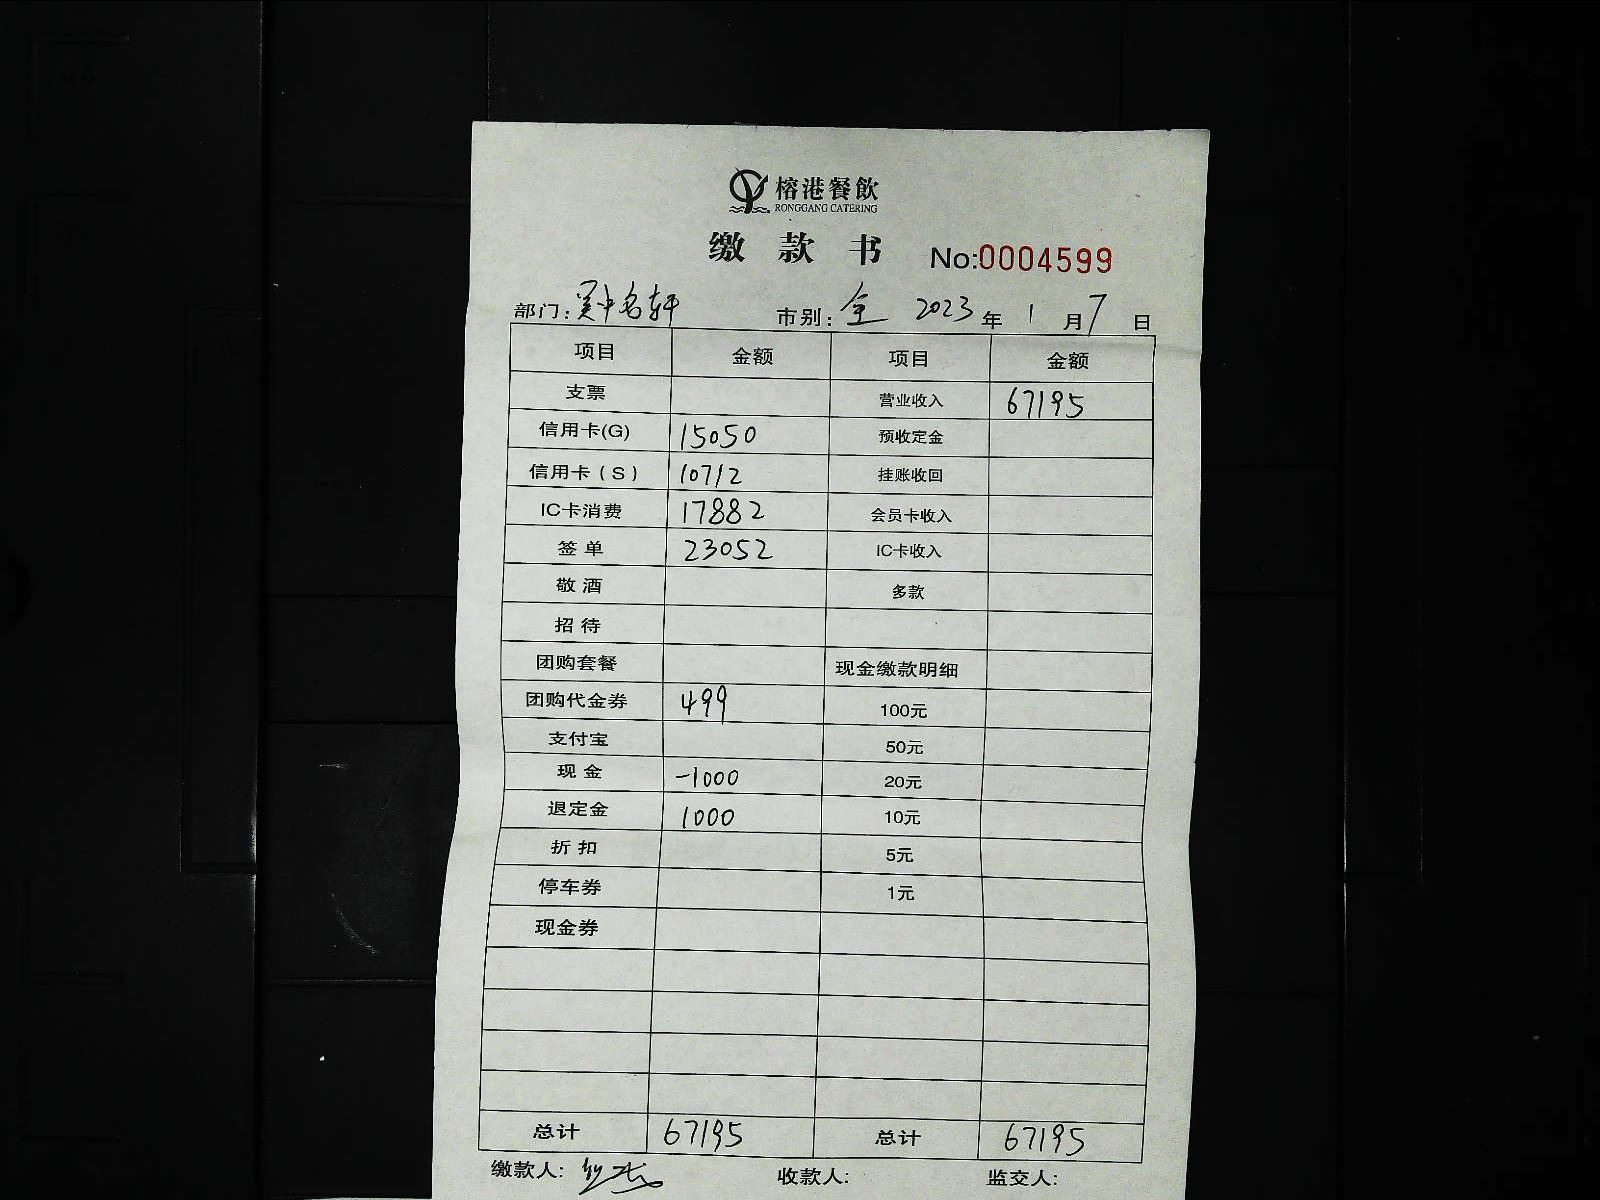 榕港餐飲
RONGGANG CATERING
缴款书 No:0004599
部门:吴中名轩 市别:全 2023年1月7日
项目 金额 项目 金额
支票 营业收入 67195
信用卡(G) 15050 预收定金
信用卡(S) 10712 挂账收回
IC卡消费 17882 会员卡收入
签单 23052 IC卡收入
敬酒 多款
招待
团购套餐 现金缴款明细
团购代金券 499 100元
支付宝 50元
现金 -1000 20元
退定金 1000 10元
折扣 5元
停车券 1元
现金券
总计 67195 总计 67195
缴款人: 收款人: 监交人: